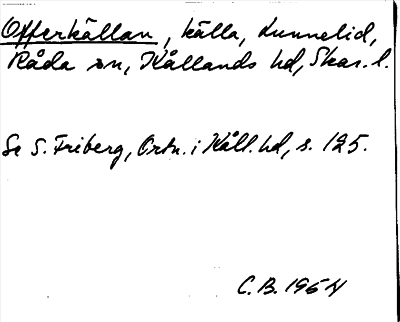 Offerkällan, källa, Lunnelid,
Råda sn, Kållands hd, Skar. l.
Se S. Friberg, Ortn. i Kåll. hd, s. 125.
C.B. 1964